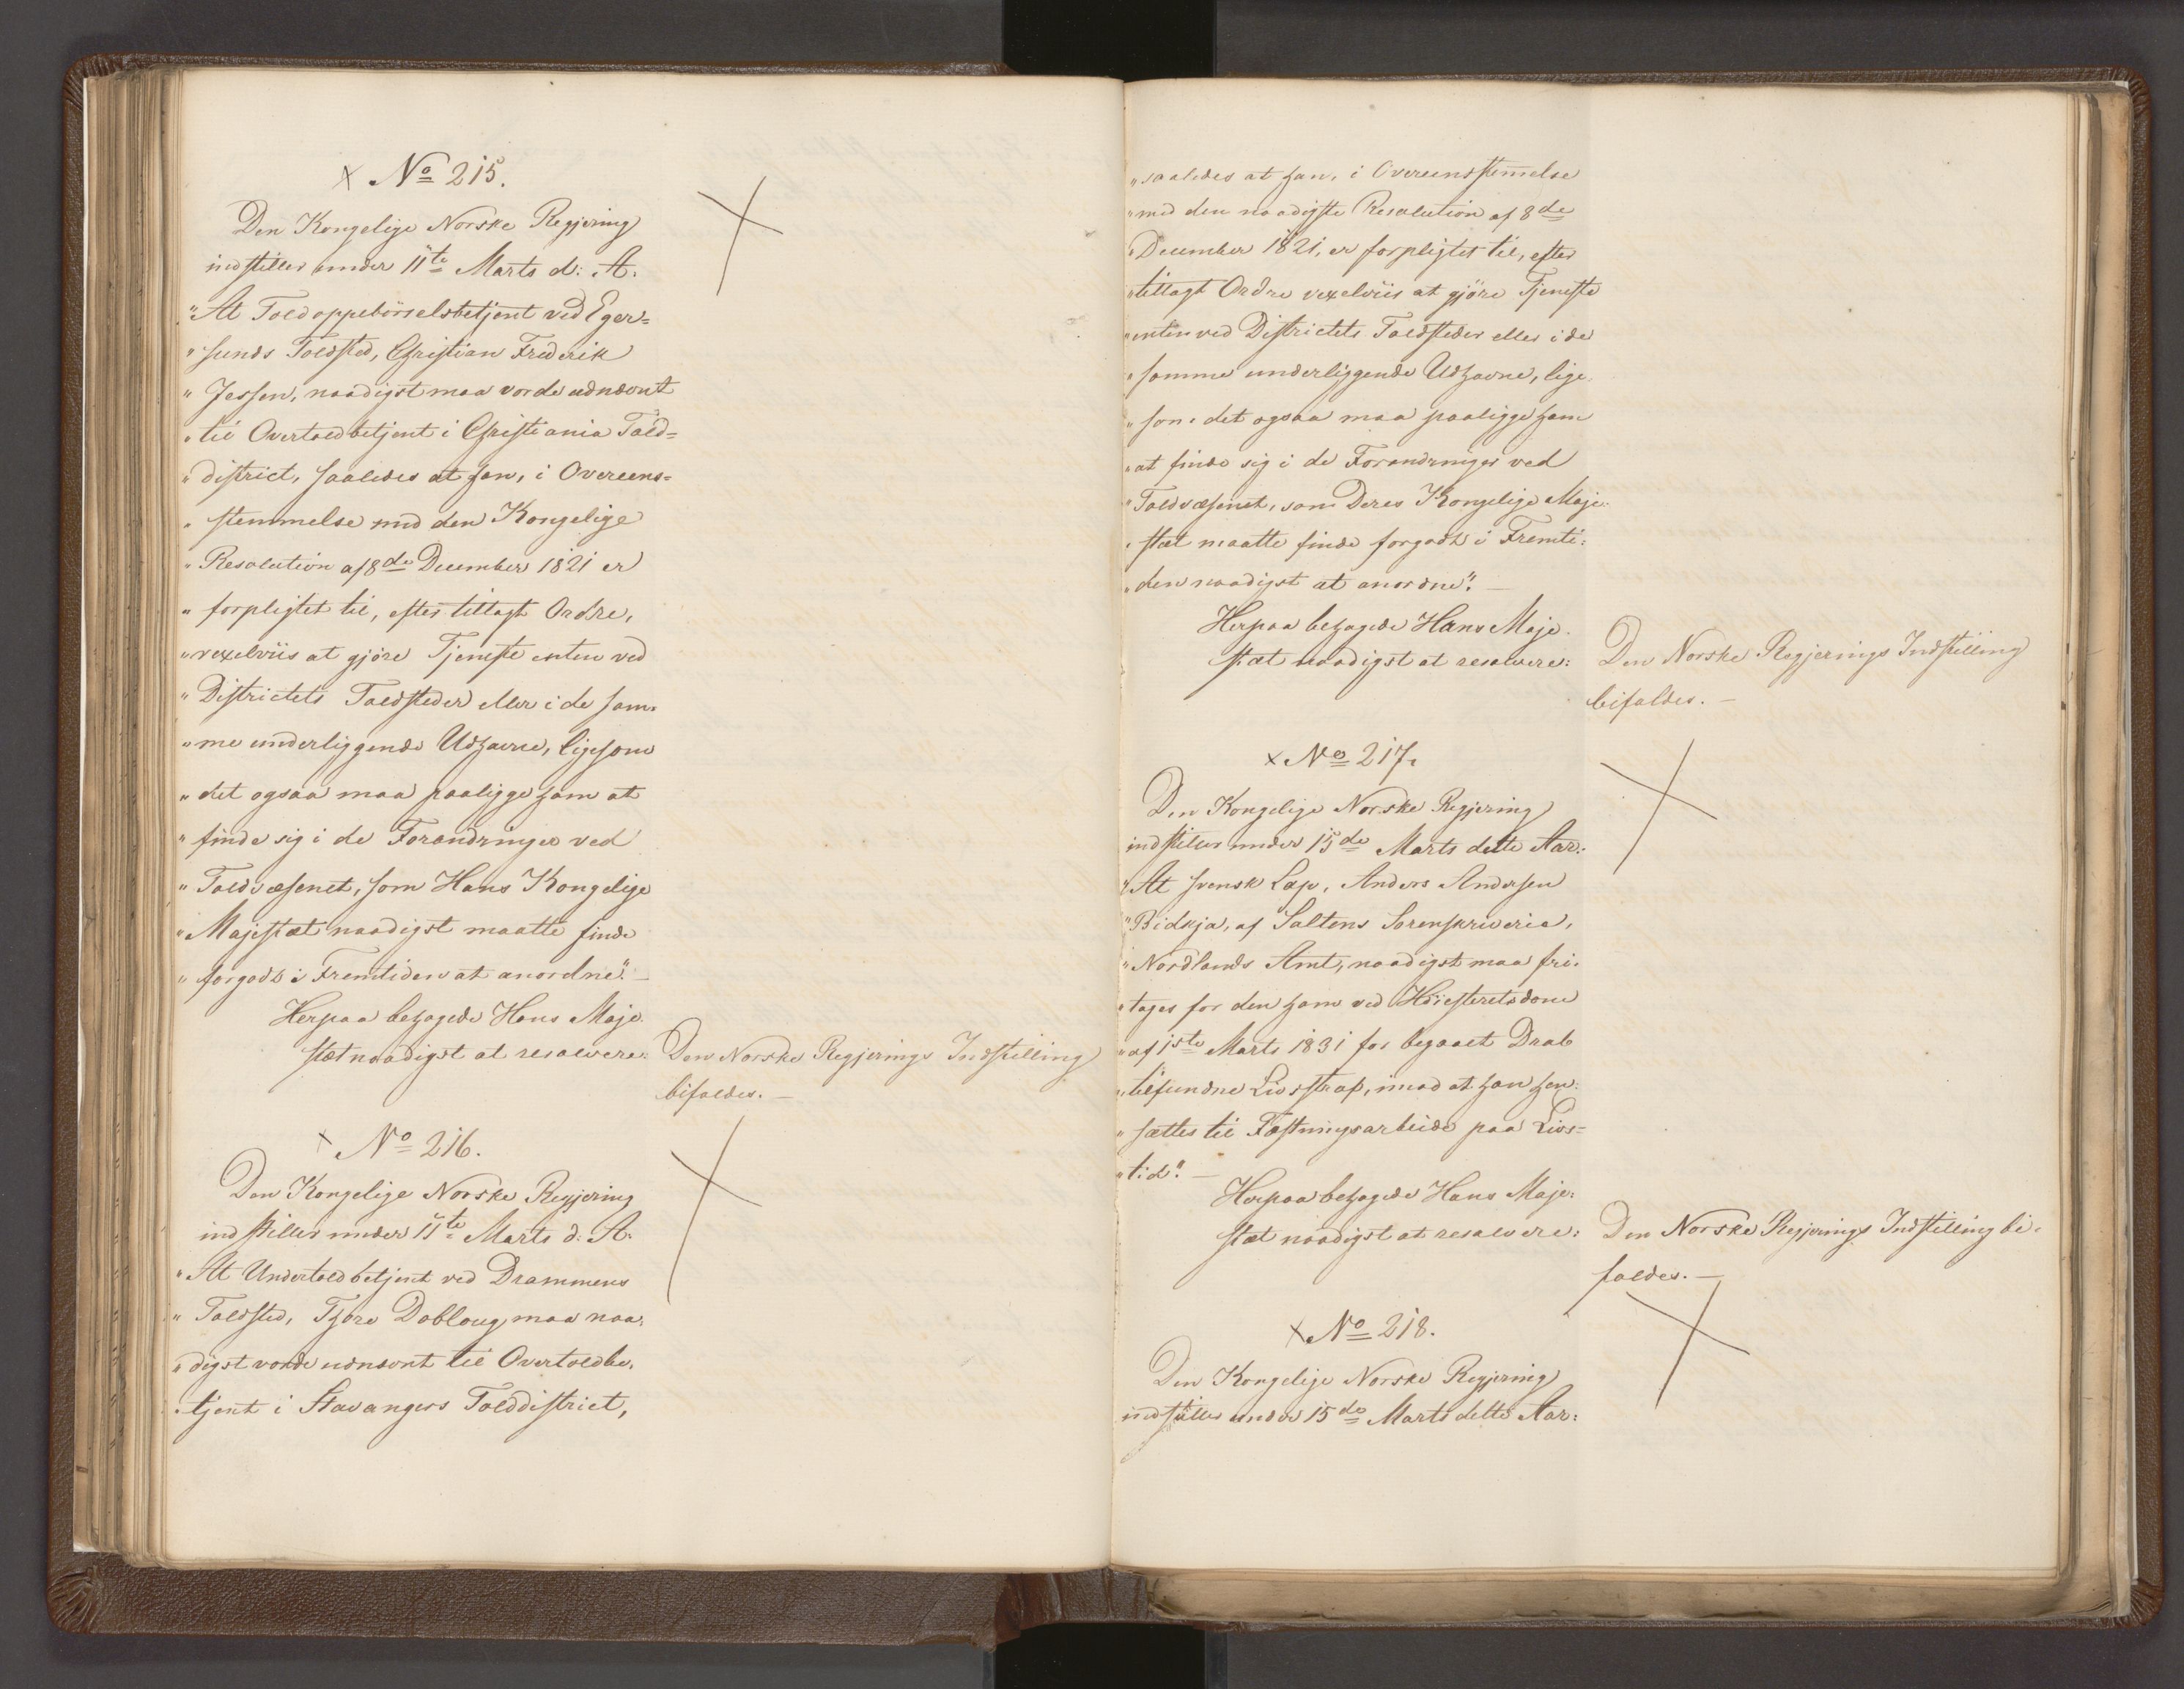 × No 215.
Den Kongelige Norske Regjering
indstiller under 11te Marts d: A.
"At Toldoppebörselsbetjent ved Eger=
"sunds Toldsted, Christian Frederik
"Jessen, naadigst maa vorde udnævnt
"til Overtoldbetjent i Christiania Told=
"district, saaledes at han, i Overeens=
"stemmelse med den Kongelige
"Resolution af 8de December 1821 er
"forpligtet til, efter tillagt Ordre,
"vexelviis at gjöre Tjeneste enten ved
"Districtets Toldsteder eller i de sam-
"me underliggende Udhavne, ligesom
"det ogsaa maa paaligge ham at
"finde sig i de Forandringer ved
"Toldvæsenet, som Hans Kongelige
"Majestæt naadigst maatte finde
"forgodt i Fremtiden at anordne". —
Herpaa behagede Hans Maje-
stæt naadigst at resolvere:
Den Norske Regjerings Indstilling
bifaldes. —
× No 216.
Den Kongelige Norske Regjering
indstiller under 11te Marts d: A:
"At Undertoldbetjent ved Drammens
"Toldsted, Thore Dobloug maa naa-
"digst vorde udnævnt til Overtoldbe-
"tjent i Stavangers Tolddistrict,
"saaledes at han, i Overeenstemmelse
"med den naadigste Resolution af 8de
"December 1821, er forpligtet til, efter
"tillagt Ordre vexelviis at gjöre Tjeneste
"enten ved Districtets Toldsteder eller i de
"samme underliggende Udhavne, lige-
"som det ogsaa maa paaligge ham
"at finde sig i de Forandringer ved
"Toldvæsenet, som Deres Kongelige Maje-
"stæt maatte finde forgodt i Fremti-
"den naadigst at anordne". —
Herpaa behagede Hans Maje-
stæt naadigst at resolvere:
Den Norske Regjerings Indstilling
bifaldes. —
× No 217.
Den Kongelige Norske Regjering
indstiller under 15de Marts dette Aar:
"At svensk Lap, Anders Andersen
"Bidkja, af Saltens Sorenskriverie,
"Nordlands Amt, naadigst maa fri-
"tages for den ham ved Höiesteretsdom
"af 1ste Marts 1831 for begaaet Drab
"tilfundne Livsstraf, imod at han hen-
"sættes til Fæstningsarbeide paa Livs=
"tid". —
Herpaa behagede Hans Maje-
stæt naadigst at resolvere:
Den Norske Regjerings Indstilling bi-
faldes. —
× No 218.
Den Kongelige Norske Regjering
indstiller under 15de Marts dette Aar: